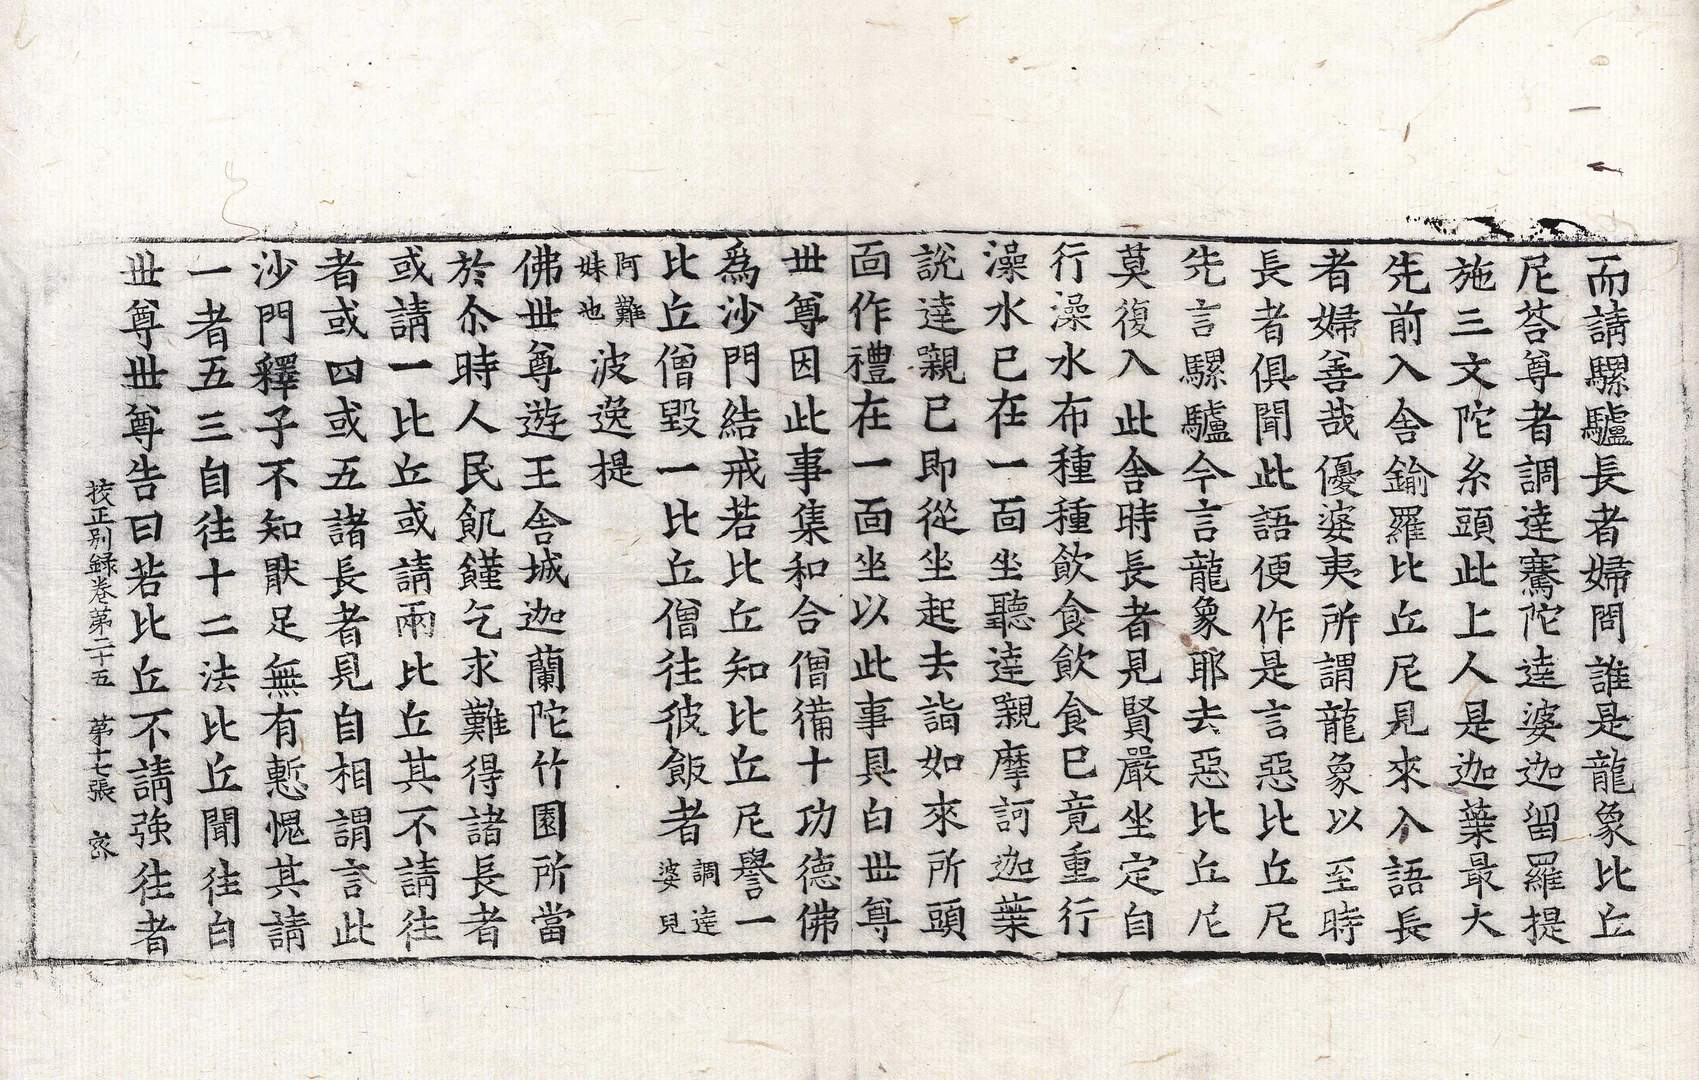 而請騾驢長者婦問誰是龍象比丘
尼荅尊者調達騫陀達婆迦留羅提
施三文陀糸頭此上人是迦葉最大
先前入舍鍮羅比丘尼見來入語長
者婦善哉優婆夷所謂龍象以至時
長者俱聞此語便作是言惡比丘尼
先言騾驢今言龍象耶去惡比丘尼
莫復入此舍時長者見賢嚴坐定自
行澡水布種種飲食飲食已竟重行
澡水已在一面坐聽達嚫摩訶迦葉
說達嚫已即從坐起去詣如來所頭
面作禮在一面坐以此事具白世尊
世尊因此事集和合僧備十功德佛
爲沙門結戒若比丘知比丘尼譽一
比丘僧毀一比丘僧往彼飯者調達婆見
阿難妹也波逸提
佛世尊遊王舍城迦蘭陀竹園所當
於尒時人民飢饉乞求難得諸長者
或請一比丘或請兩比丘其不請往
者或四或五諸長者見自相謂言此
沙門釋子不知猒足無有慙愧其請
一者五三自往十二法比丘聞往白
世尊世尊告曰若比丘不請強往者
挍正別録卷第二十五 第十七張